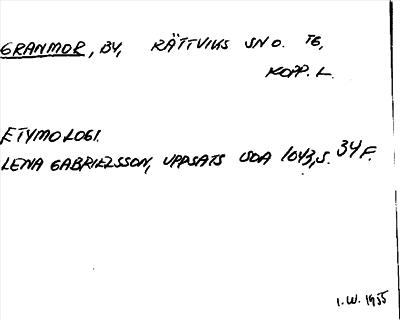 GRANMOR, BY, RÄTTVIKS SN O. TG,
KOPP. L.
ETYMOLOGI.
LENA GABRIELSSON, UPPSATS UDA 1043, S. 34 F.
I. W. 1955